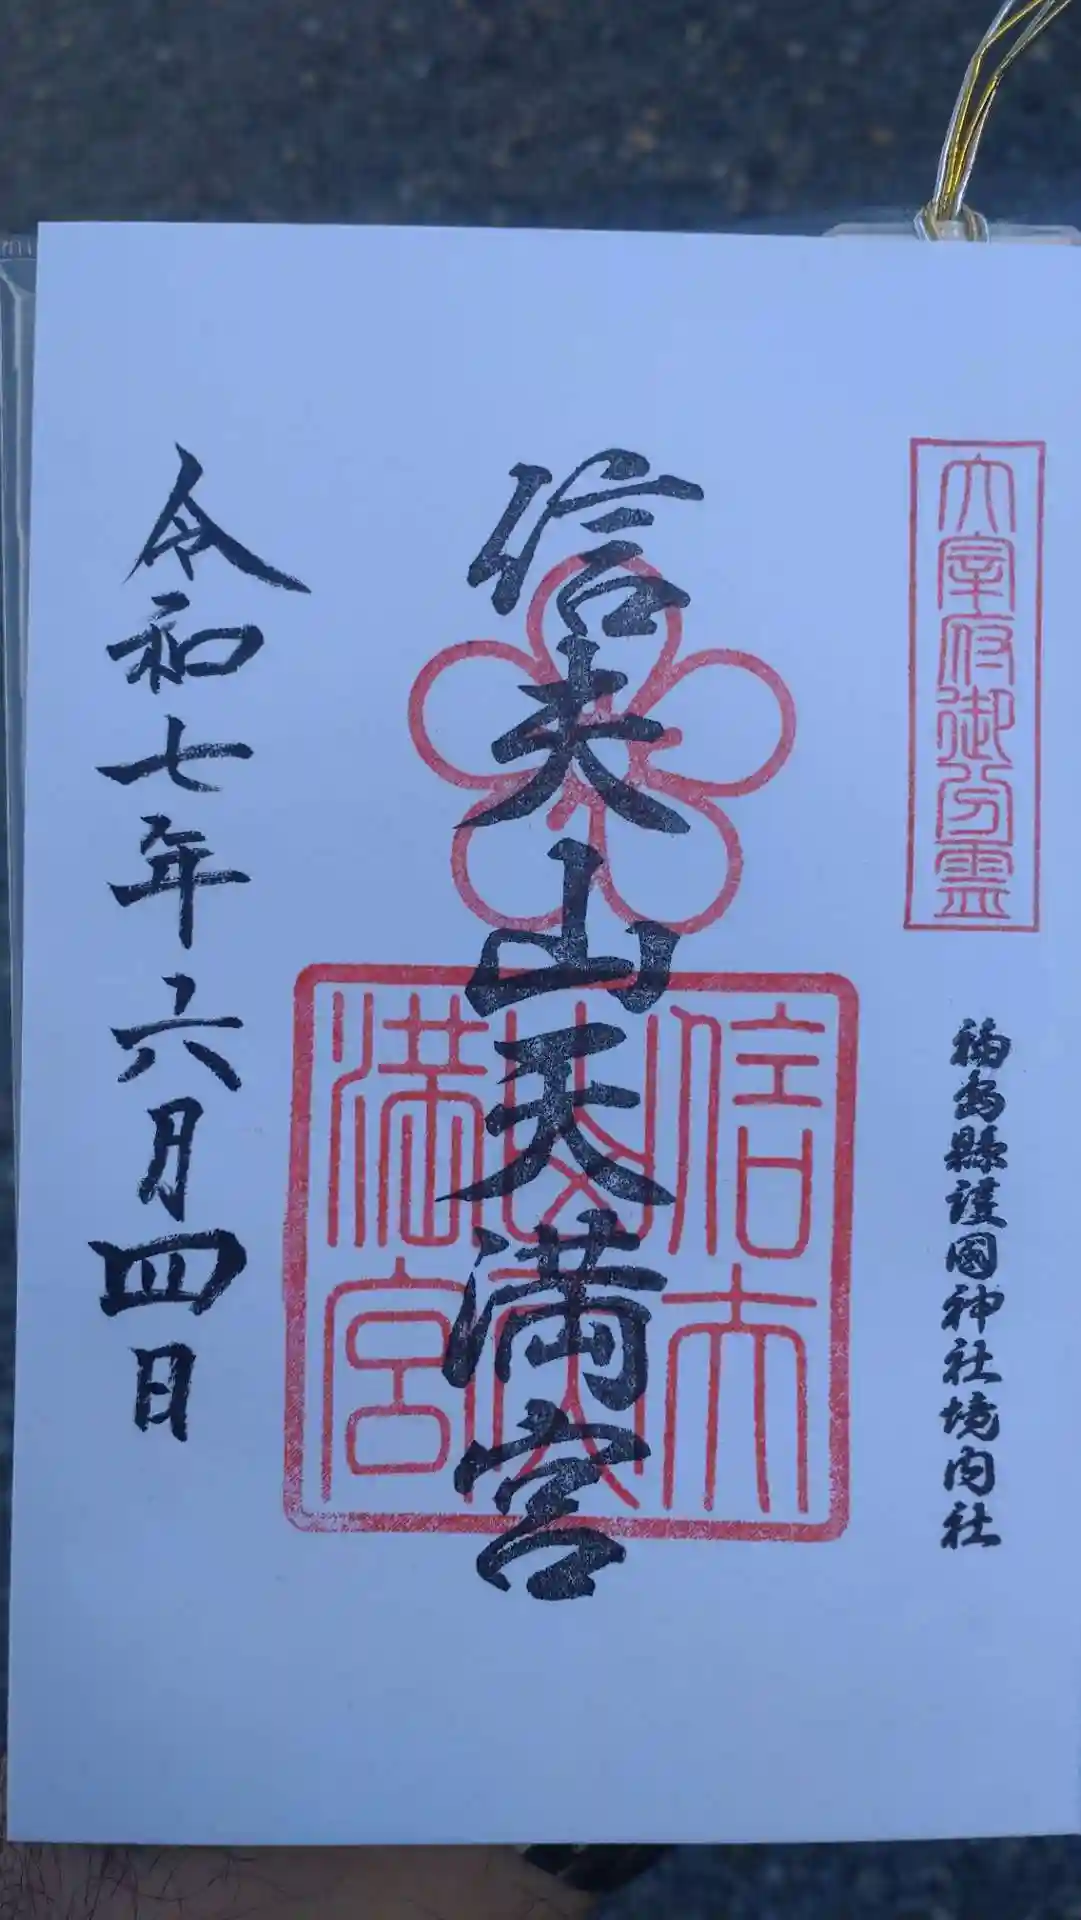 大宰府御分霊
福島縣護國神社境内社
信夫山天満宮
信夫山天満宮
令和七年六月四日